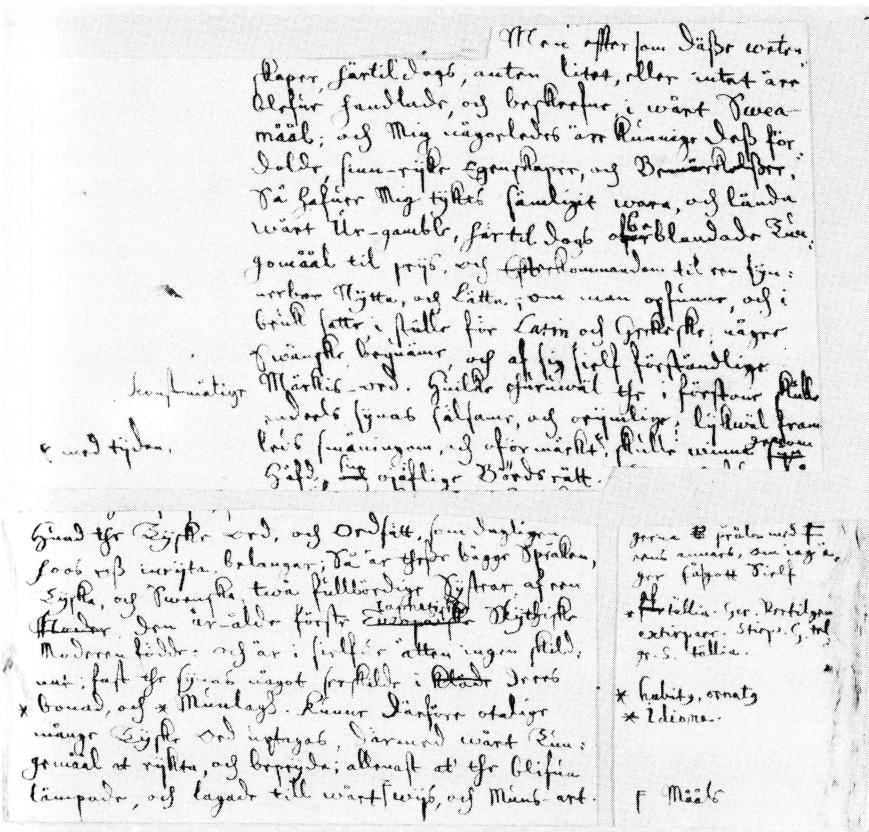 Men effter som däße weten
skaper, härtil dags, anten litet, eller intet äre
blefne handlade, och beskrefne i wårt Swea-
måål; och Mig någorledes äre kunnige deß för-
dolde, sinn-ryke Egenskaper, och Bemärkelßer,
Så hafuer Mig tykts sämligit wara, och lända
wårt Ur-gamble, här til dags oblandade Tun-
gomåål til prijs, och Efterkommandom til een syn-
nerbar Nytta, och Lätta; om man opfunne, och i
bruk satte i ställe för Latin och Grekeske, någre
Swänske beqwäme, och af sig sielf förståndlige
konstmätige Märkis-ord. Huilke ehuruwäl the i förstone skulle
endels synas sälsame, och orijmlige; lykwäl fram
med tyden. leds småningom, och oförmärkt skulle winna genom
Häfd, sin ojäflige Bördsrätt.
Huad the Tyske ord, och Ordsätt, som dagligen
hoos oss inryta, belangar; Så är theße bägge Språken,
Tyska, och Swenska twå fullbördige Systrar af een
den ur-ålde förste Skythiske
Moderen födde: och är i sielfue ätten ingen skild-
nat; fast the synas något serskilde i deres
* bonad, och * Munlag. Kunne därföre otalige
många Tyske Ord uptagas, därmed wårt Tun-
gemåål at rykta, och bepryda; allenast at the blifua
lämpade, och lagade till wårt wijs, och Muns-art.
gerna prålen med
rens annars, om iag
ger sielf
* tällia. Ger.
extirpare. Stirps. G.
S. tällia.
* habitus, ornatus
* Idioma.
Mååls